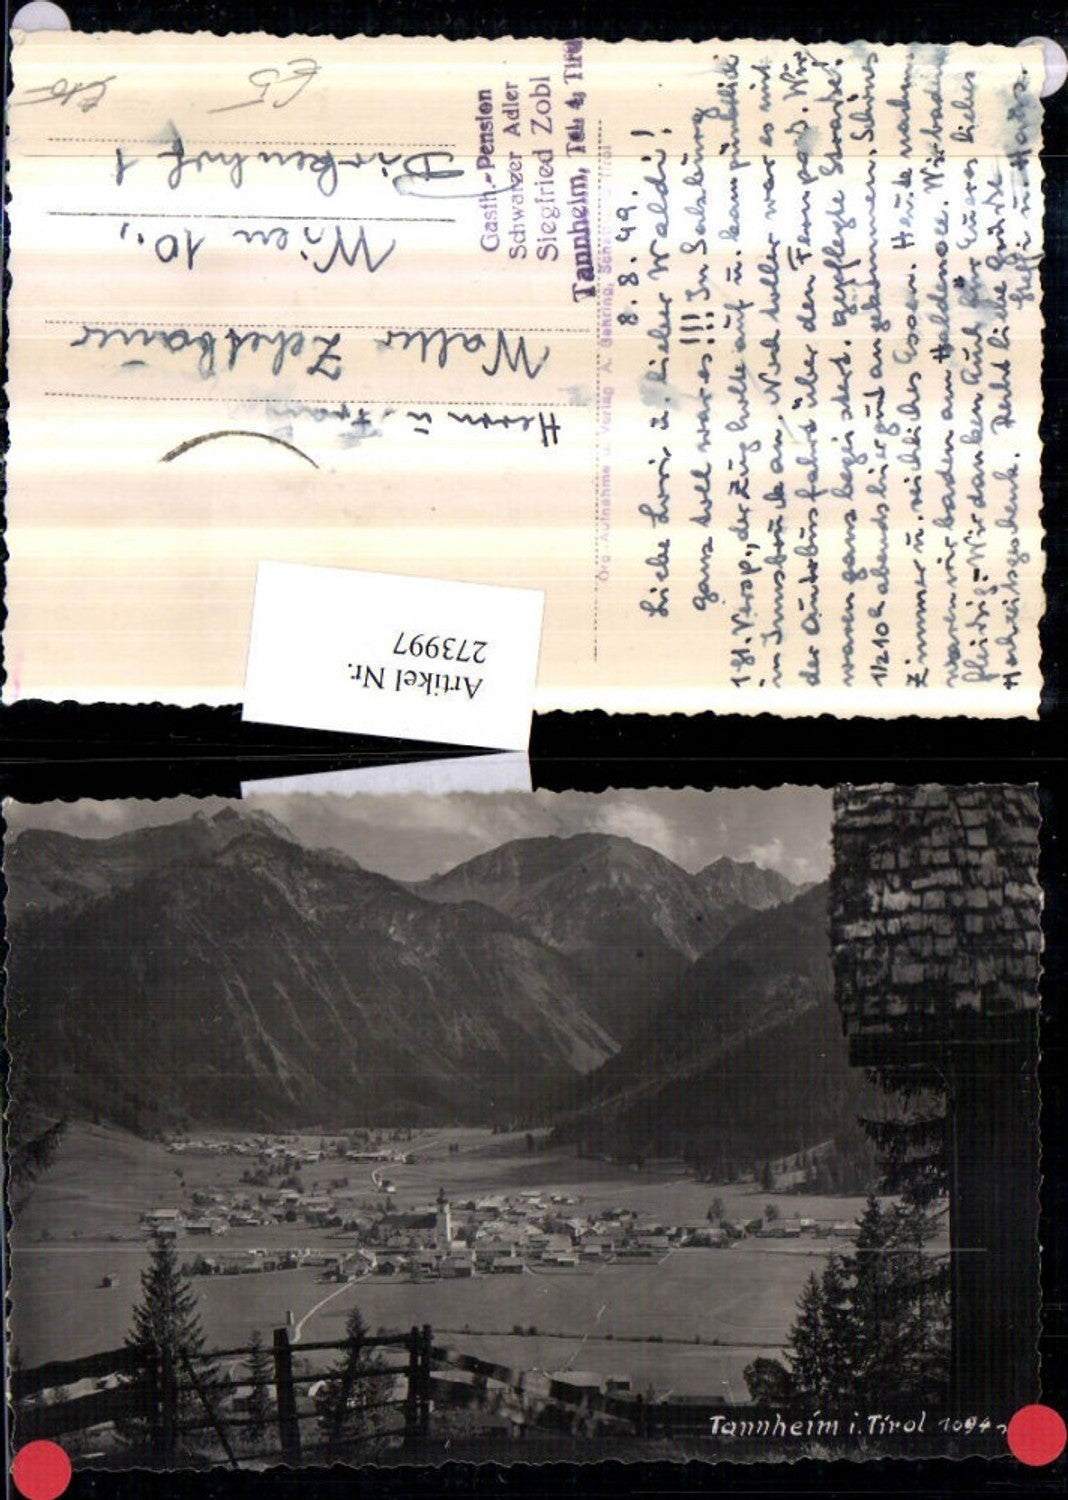 8.8.49.
Liebe Lori u. lieber Waldi!
Ganz toll war es!!! In Salzburg
1 St. Versp., der Zug holte auf u. kam pünktli
in Innsbruck an. Noch toller war es mit
der Autobusfahrt über den Fernpaß. Wir
waren ganz begeistert. Gepflegte Straße!
1/2 10h abends hier gut angekommen. Schönes
Zimmer u. reichliches Essen. Heute nahm.
waren wir baden am Haldensee. Wir baden
fleißig. Wir danken Euch für Euer liebes
Hochzeitsgeschenk. Recht liebe Grüße
Steffi u. Hans.
Org. Aufnahme u. Verlag A.
Gasth.-Pension
Schwarzer Adler
Siegfried Zobl
Tannheim, Tel. 4, Tirol
Herrn u. Frau
Walter Zehetbauer
Wien 10.,
1
Artikel Nr.
273997
Tannheim i. Tirol 1094 m